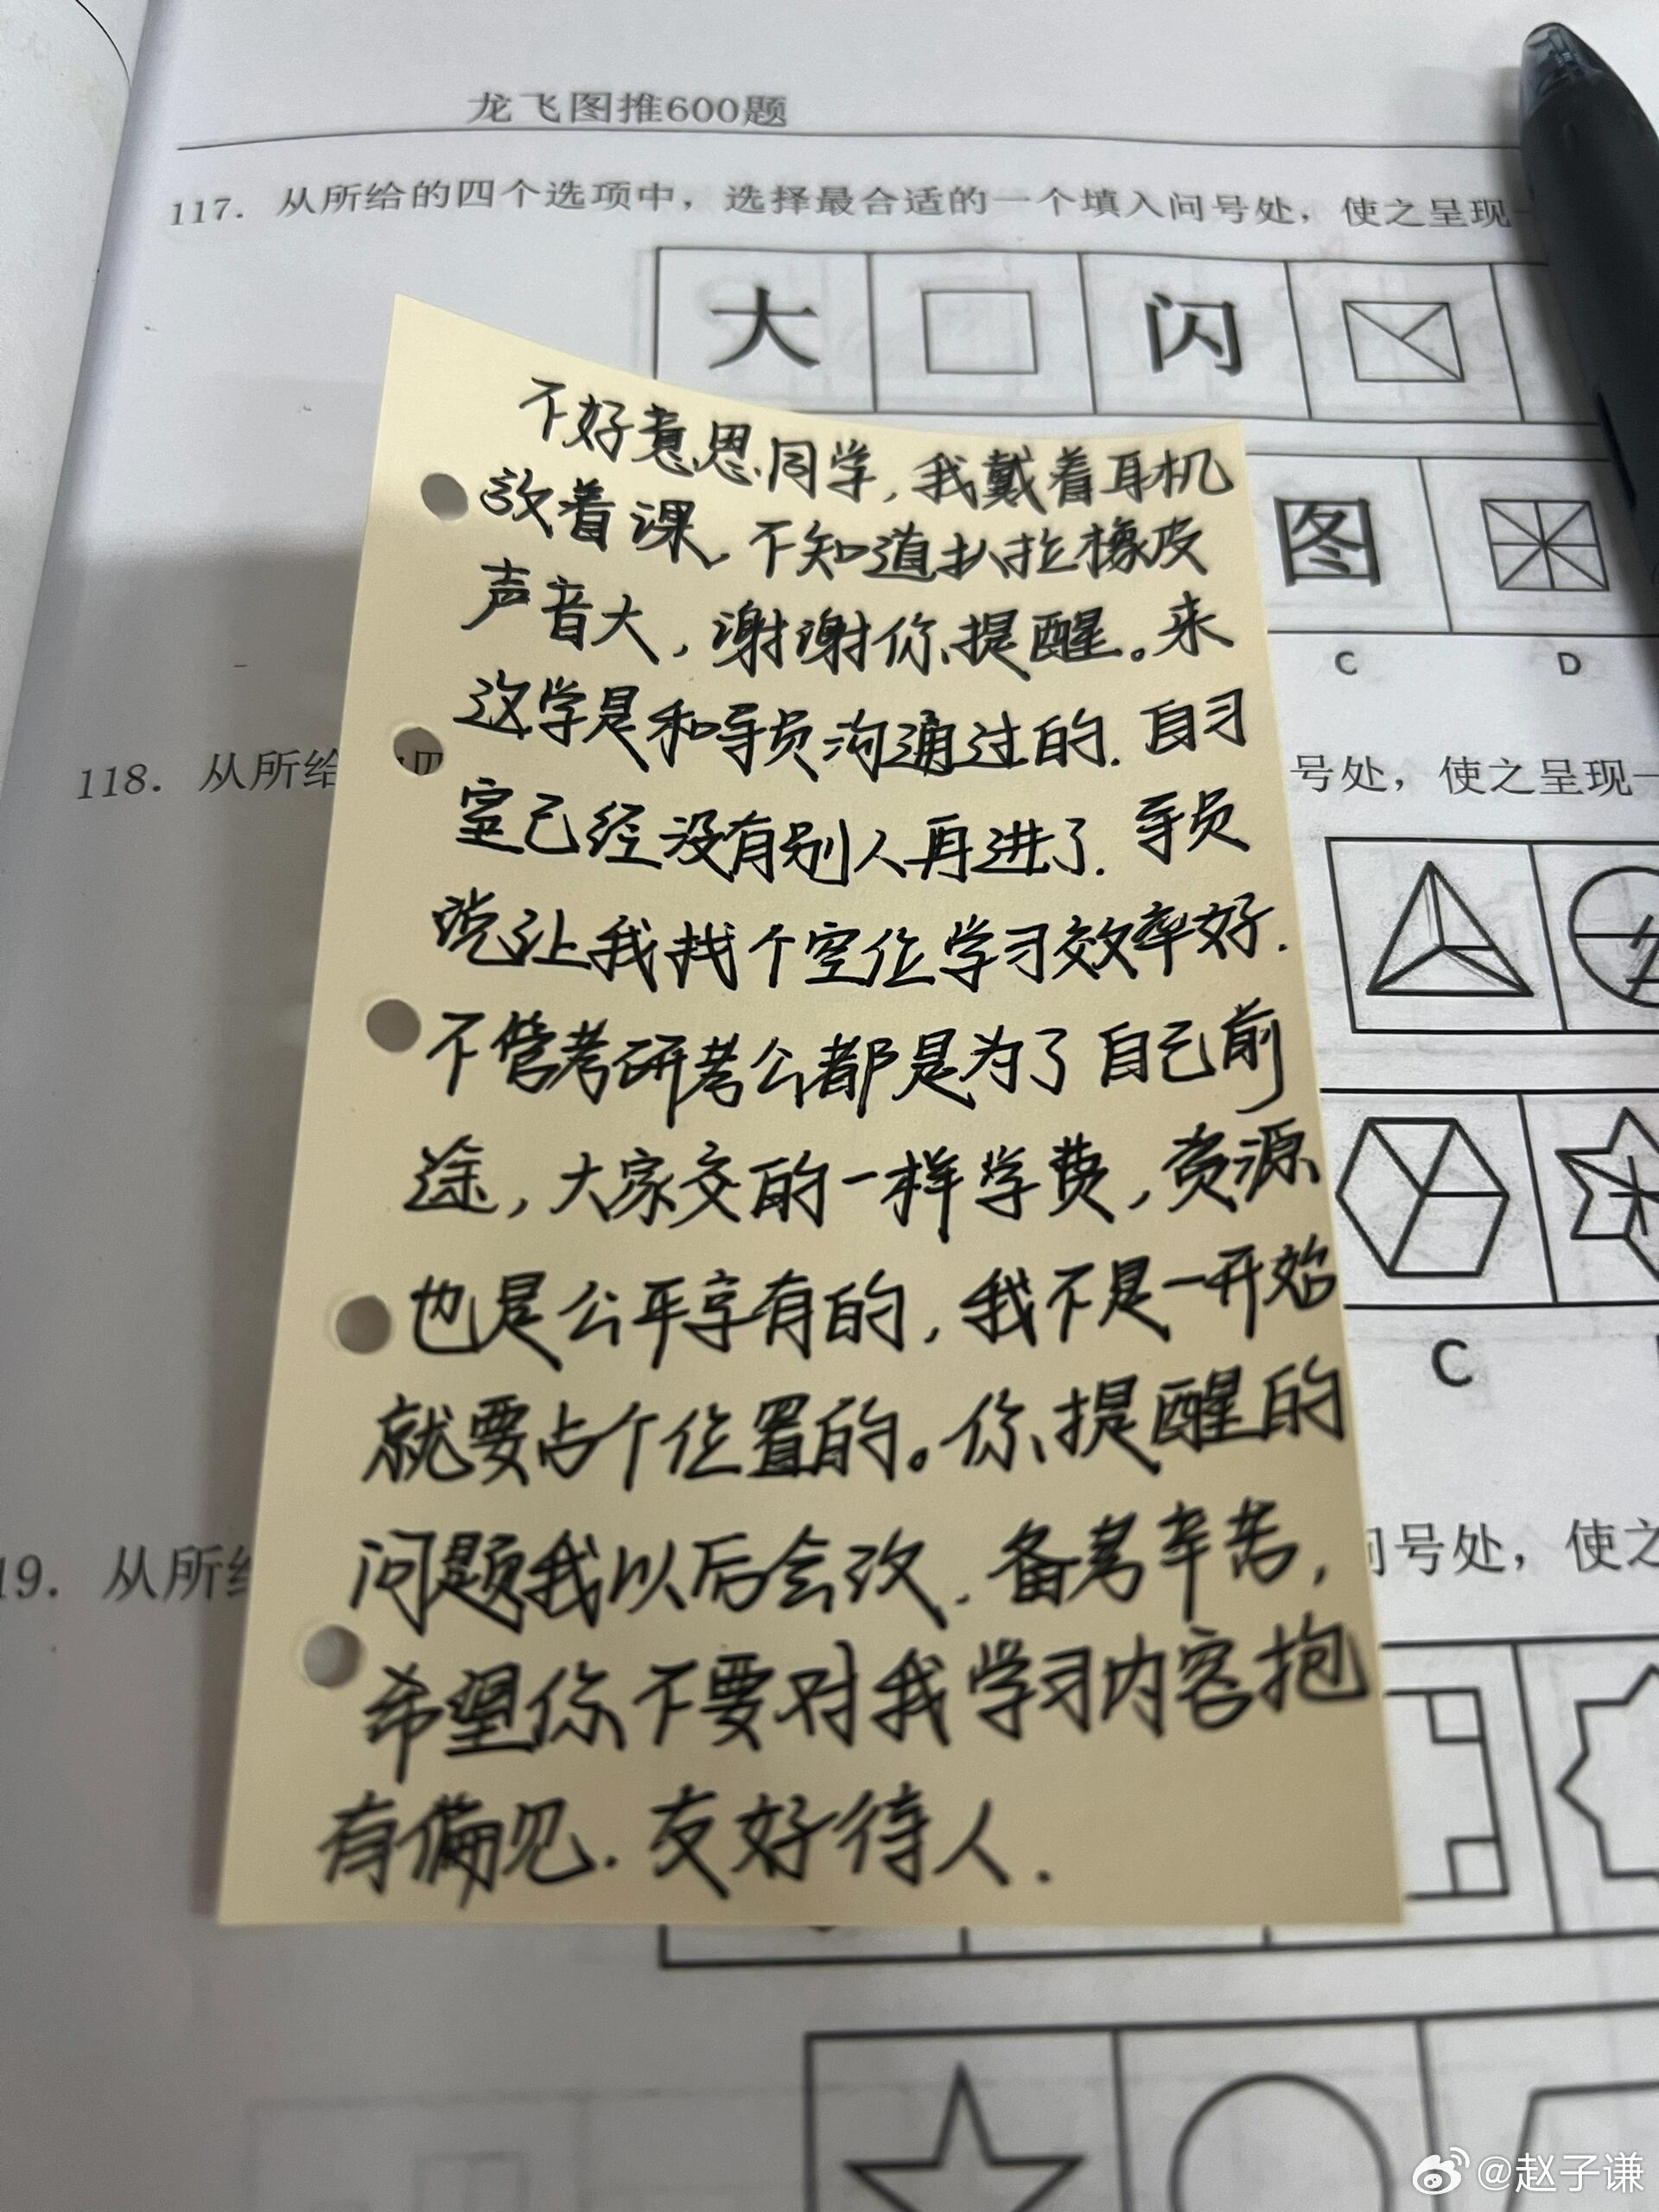 龙飞图推600题
117. 从所给的四个选项中，选择最合适的一个填入问号处，使之呈现一
大 闪
图
C D
不好意思同学，我戴着耳机
放着课，不知道扒拉橡皮
声音大，谢谢你提醒。来
这学是和导员沟通过的．自习
室已经没有别人再进了．导员
说让我找个空位学习效率好．
不管考研考公都是为了自己前
途，大家交的一样学费，资源
也是公平享有的，我不是一开始
就要占个位置的。你提醒的
问题我以后会改．备考辛苦，
希望你不要对我学习内容抱
有偏见．友好待人．
118. 从所给
号处，使之呈现一
C
19. 从所给
问号处，使之
@赵子谦